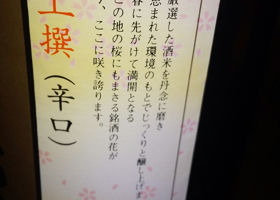 厳選した酒米を丹念に磨き
恵まれた環境のもとでじっくりと醸し上げま
春に先がけて満開となる
この地の桜にもまさる銘酒の花が
、ここに咲き誇ります。
上撰(辛口)